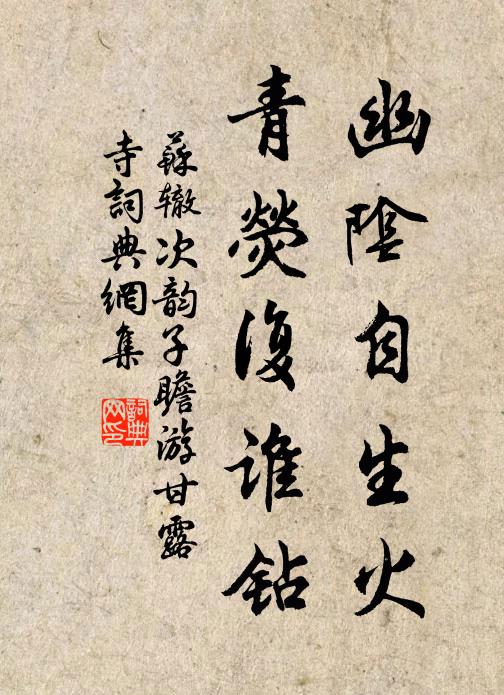 幽陰自生火
青熒復誰鉆
蘇辙次韵子瞻游甘露
寺詞典網集
詞典
网印